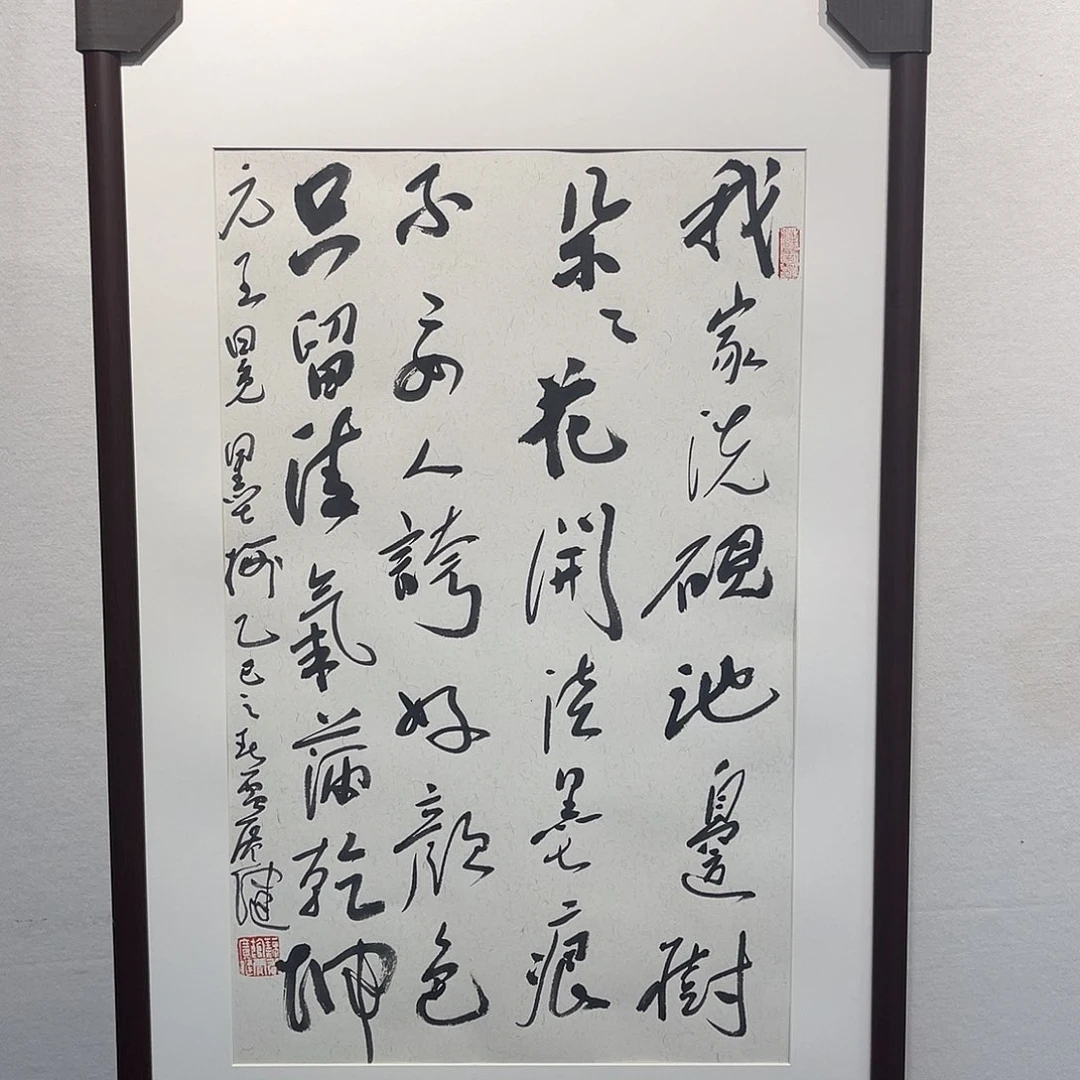 我家洗硯池邊樹
朵々花開淡墨痕
不要人誇好顏色
只留清氣滿乾坤
元王冕墨梅乙巳之春